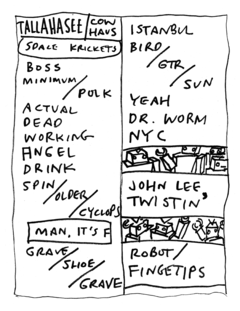 TALLAHASEE
COW
HAUS
SPACE KRICKETS
BOSS
MINIMUM/
PULK
ACTUAL
DEAD
WORKING
ANGEL
DRINK
SPIN/
OLDER/
CYCLOPS
MAN, IT'S F
GRAVE/
SHOE/
GRAVE
ISTANBUL
BIRD/
GTR/
SUN
YEAH
DR. WORM
NYC
JOHN LEE
TWISTIN'
ROBOT/
FINGETIPS